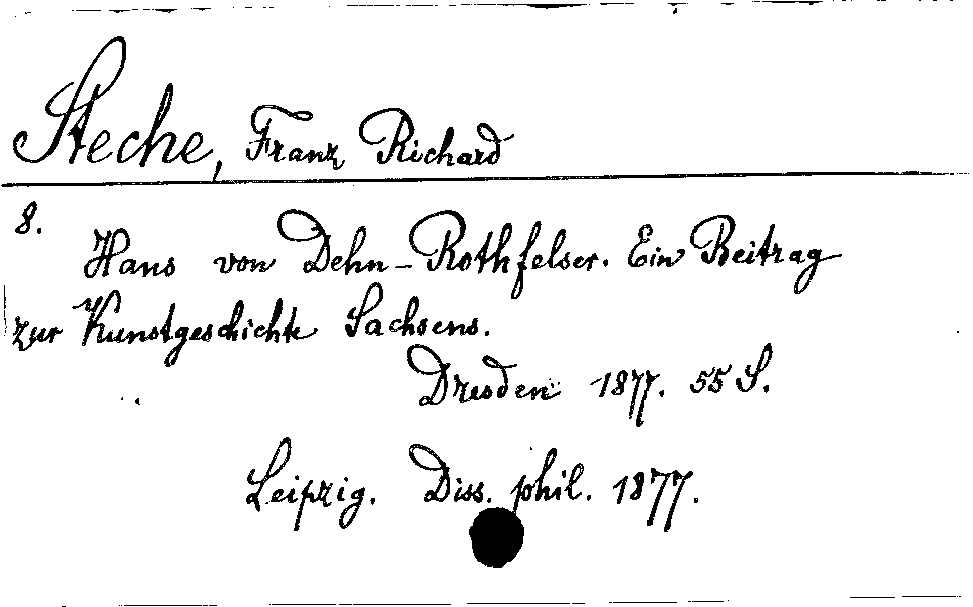 Steche, Franz Richard
8.
Hans von Dehn-Rothfelser. Ein Beitrag
zur Kunstgeschichte Sachsens.
Dresden 1877. 55 S.
Leipzig. Diss. phil. 1877.